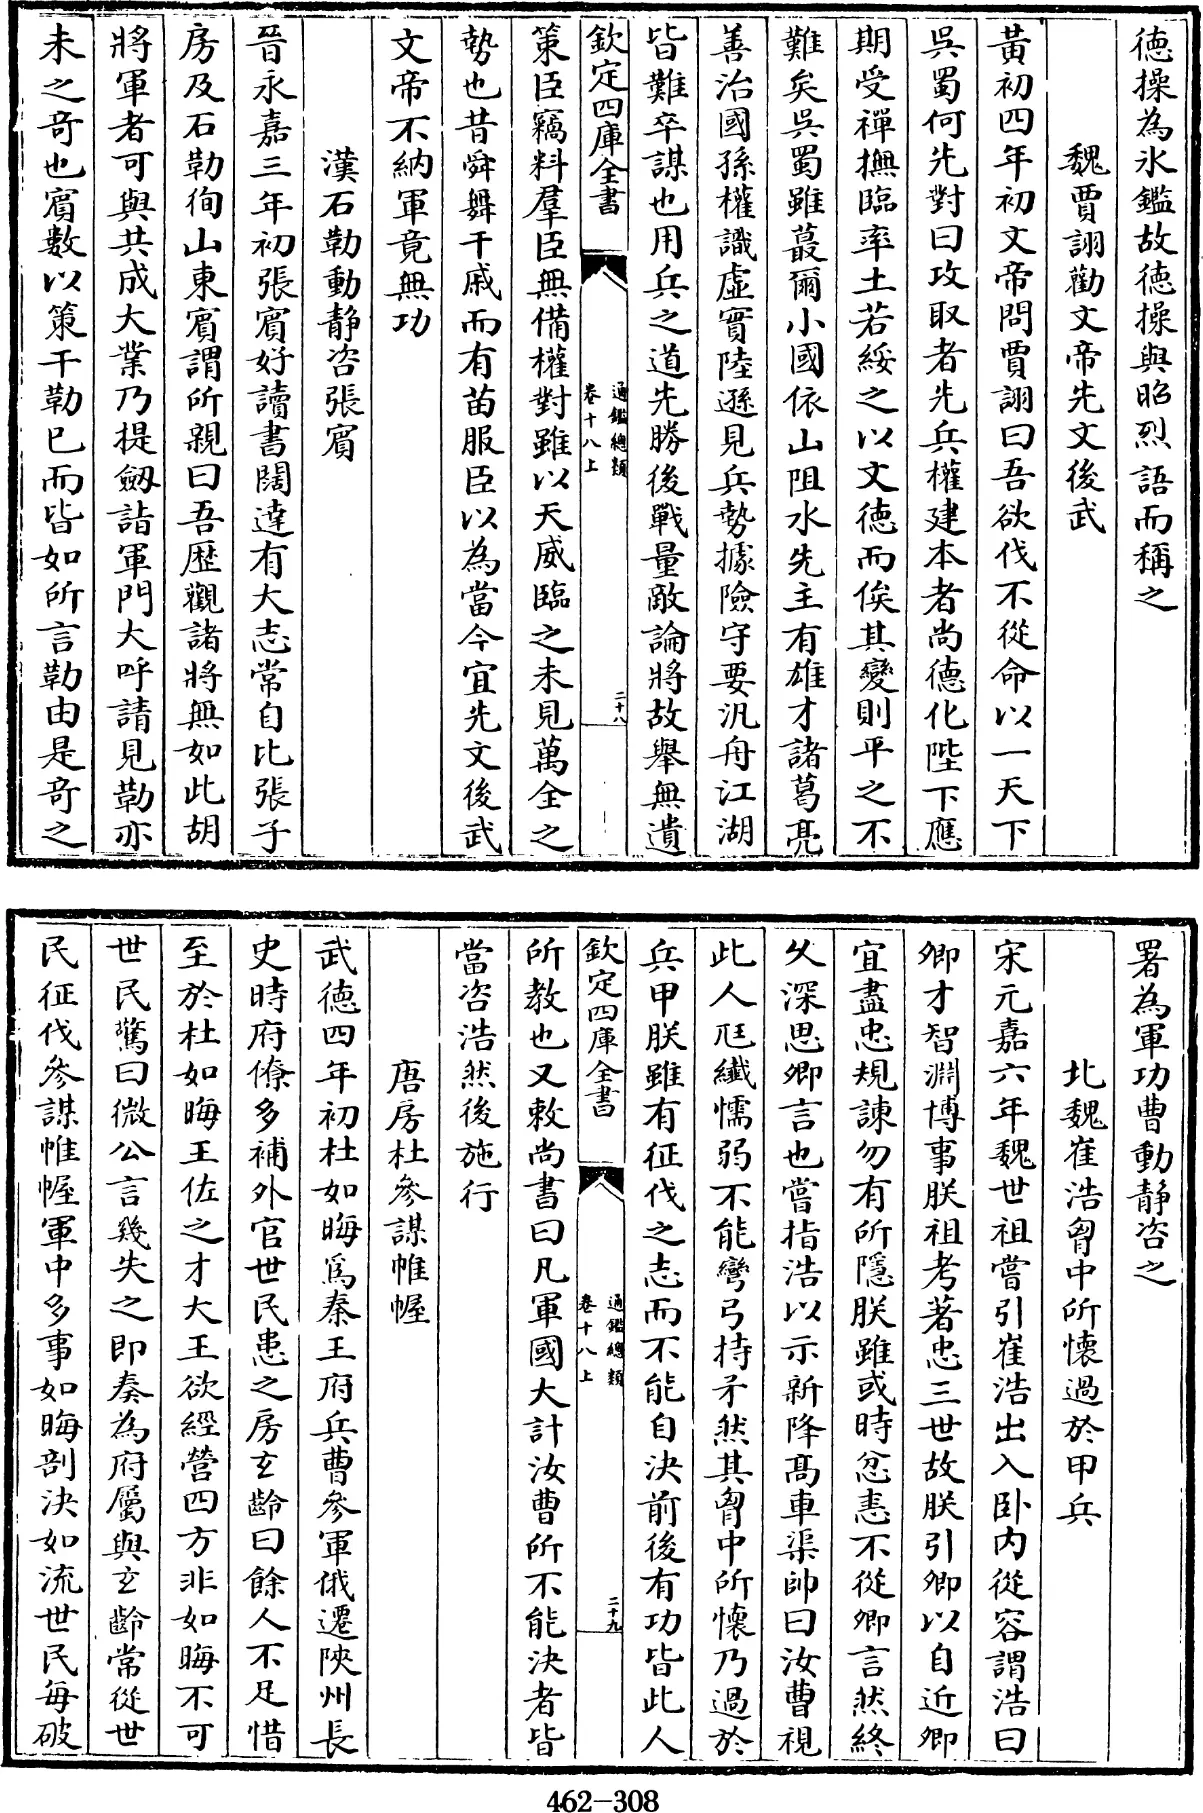 德操為氷鑑故德操與昭烈語而稱之
魏賈詡勸文帝先文後武
黃初四年初文帝問賈詡曰吾欲伐不從命以一天下
吳蜀何先對曰攻取者先兵權建本者尚德化陛下應
期受禪撫臨率土若綏之以文德而俟其變則平之不
難矣吳蜀雖蕞爾小國依山阻水先主有雄才諸葛亮
善治國孫權識虛實陸遜見兵勢據險守要汎舟江湖
皆難卒謀也用兵之道先勝後戰量敵論將故舉無遺
欽定四庫全書
通鑑總類
卷十八上
二十八
策臣竊料羣臣無備權對雖以天威臨之未見萬全之
勢也昔舜舞干戚而有苗服臣以為當今宜先文後武
文帝不納軍竟無功
漢石勒動静咨張賔
晉永嘉三年初張賔好讀書闊達有大志常自比張子
房及石勒徇山東賔謂所親曰吾歴觀諸將無如此胡
將軍者可與共成大業乃提劔詣軍門大呼請見勒亦
未之竒也賔數以策干勒已而皆如所言勒由是竒之
署為軍功曹動静咨之
北魏崔浩胷中所懷過於甲兵
宋元嘉六年魏世祖嘗引崔浩出入卧内從容謂浩曰
卿才智淵博事朕祖考著忠三世故朕引卿以自近卿
宜盡忠規諫勿有所隱朕雖或時忿恚不從卿言然終
久深思卿言也嘗指浩以示新降髙車渠帥曰汝曹視
此人尫纎懦弱不能彎弓持矛然其胷中所懷乃過於
兵甲朕雖有征伐之志而不能自決前後有功皆此人
欽定四庫全書
通鑑總類
卷十八上
二十九
所教也又敕尚書曰凡軍國大計汝曹所不能決者皆
當咨浩然後施行
唐房杜參謀帷幄
武德四年初杜如晦爲秦王府兵曹參軍俄遷陜州長
史時府僚多補外官世民患之房玄齡曰餘人不足惜
至於杜如晦王佐之才大王欲經營四方非如晦不可
世民驚曰微公言幾失之即奏為府屬與玄齡常從世
民征伐參謀帷幄軍中多事如晦剖決如流世民每破
462-308